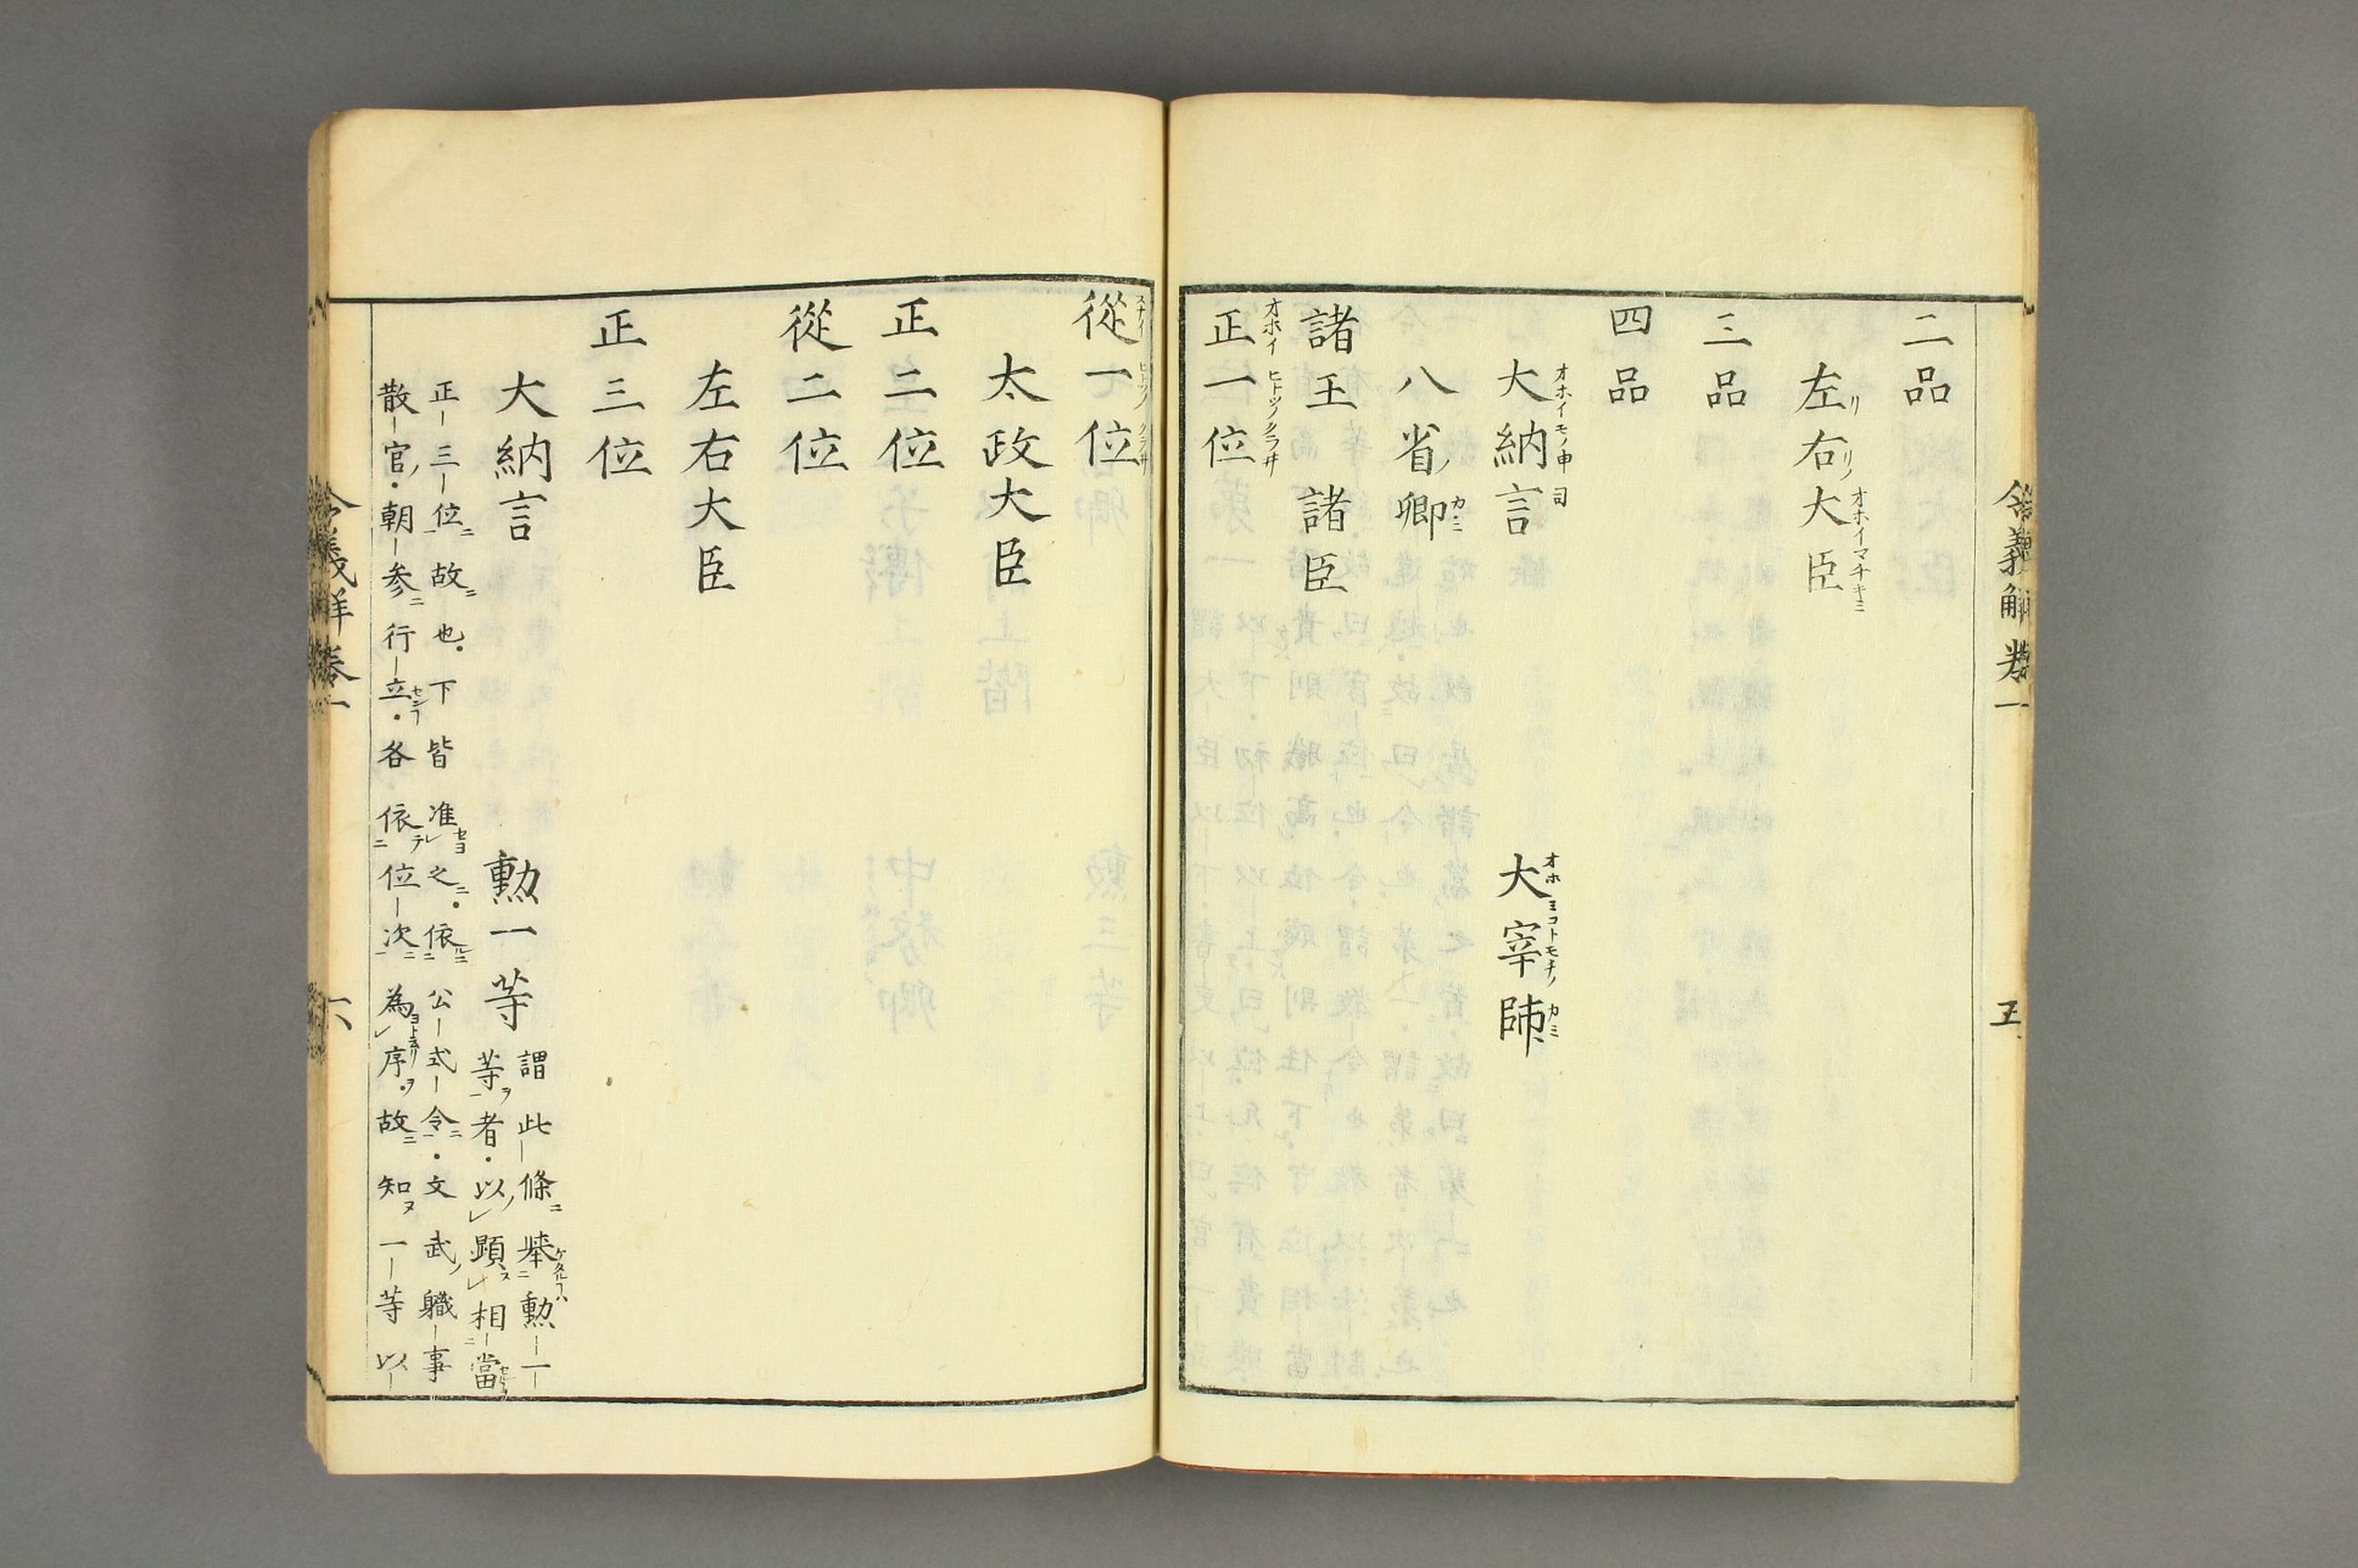 令義解卷一
五
二品
左右大臣
三品
四品
大納言　大宰帥
八省卿
諸王諸臣
正一位
從一位
太政大臣
正二位
從二位
左右大臣
正三位
大納言　勳一等
謂此條舉勳一
等者以顯相當
正三位故也下皆准之依公式令文武職事
散官朝參行立各依位次為序故知一等以
令義解卷一
六